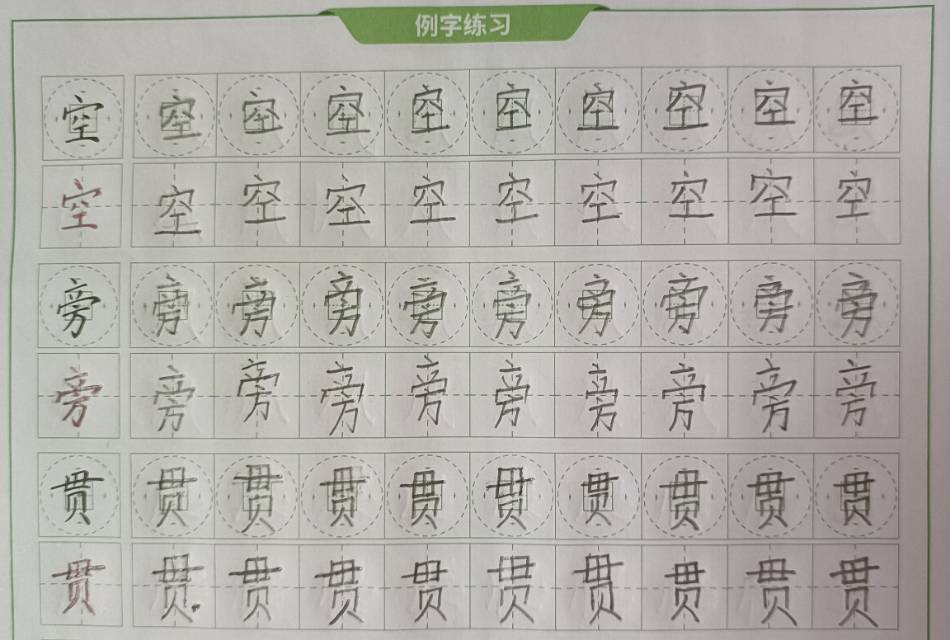 例字练习
空 空 空 空 空 空 空 空 空 空
空 空 空 空 空 空 空 空 空 空
旁 旁 旁 旁 旁 旁 旁 旁 旁 旁
旁 旁 旁 旁 旁 旁 旁 旁 旁 旁
贯 贯 贯 贯 贯 贯 贯 贯 贯 贯
贯 贯 贯 贯 贯 贯 贯 贯 贯 贯